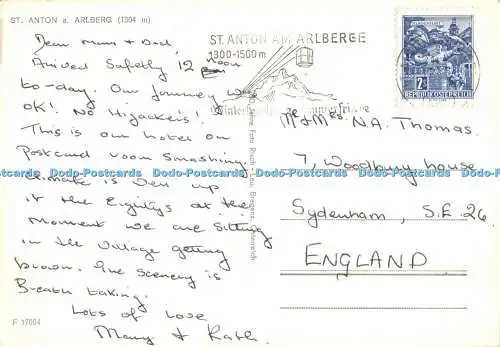 ST. ANTON a. ARLBERG (1304 m)
Dear Mum & Dad,
Arrived Safetly 12 noon
to-day. Our Journey was
OK! No Hijackers!
This is our hotel on
Postcard room Smashing.
Climate is Very up
it the Eightys at the
Moment we are Sitting
in the Village getting
brown. The Scenery is
Breath taking.
Lots of Love
Mary & Kath.
F 17004
ST. ANTON AM ARLBERG
1300-1500m
REPUBLIK ÖSTERREICH
Mr & Mrs. N.A. Thomas.
7, Woodbury house
Sydenham, S.E. 26.
ENGLAND
Dodo-Postcards Dodo-Postcards Dodo-Postcards Dodo-Postcards Dodo-Postcards Dodo-Postcards Dodo-Postcards